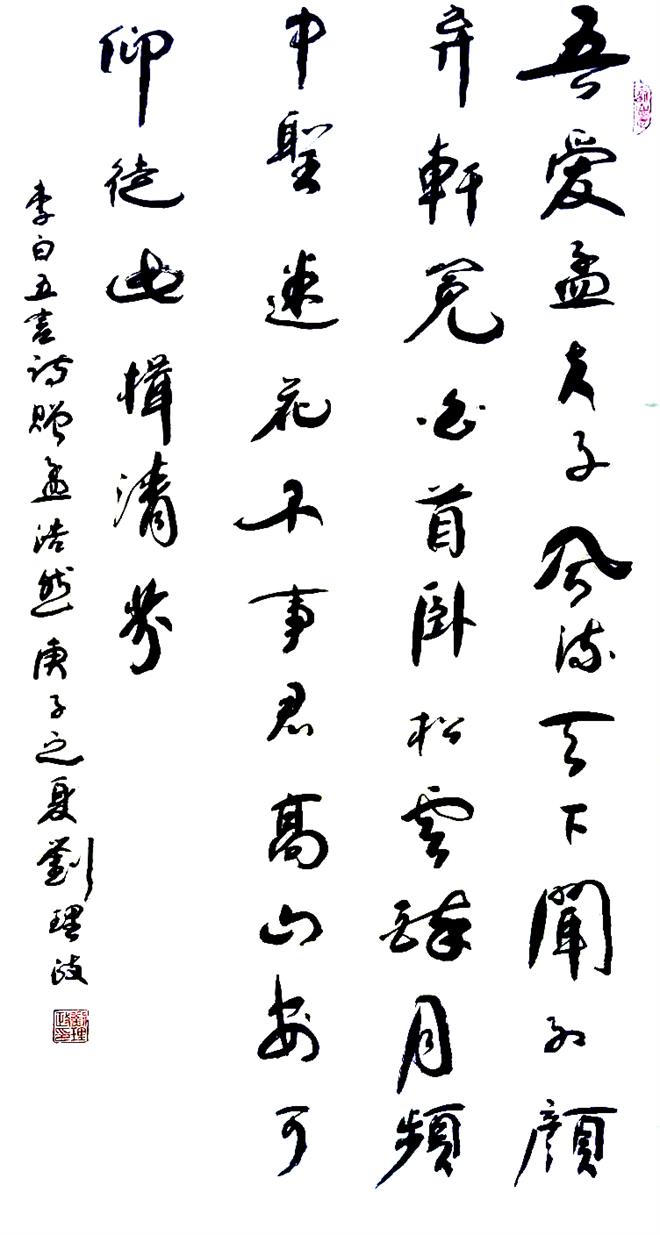 吾愛孟夫子風流天下聞紅顏
弃軒冕白首卧松雲醉月頻
中聖迷花不事君高山安可
仰徒此揖清芬
李白五言詩贈孟浩然庚子之夏劉理政
劉理政印